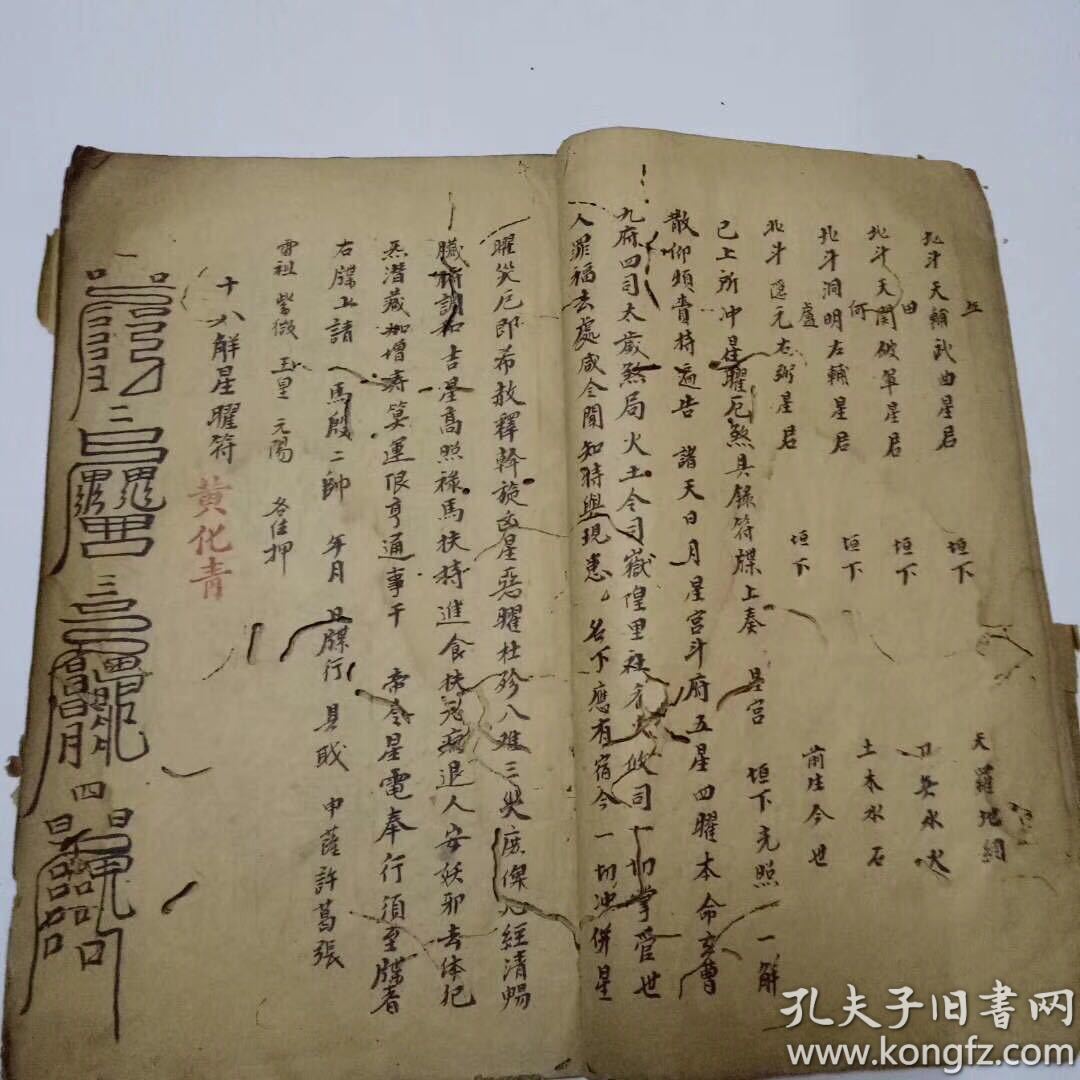 天羅地網
水火
北斗天輔武曲星君 垣下
土木水石
北斗天關破軍星君 垣下
何
前生今世
北斗洞明左輔星君 垣下
盧
北斗隱元右弼星君 垣下
已上所冲星曜厄煞具錄符牒上奏 星宮 垣下光照一解
散仰煩賫持遍告 諸天日月星宮斗府五星四曜本命玄曹
九府四司太歲煞局火土令司嶽隍里社 司一切掌管世
人罪福去處咸令聞知時與現患 名下應有宿今一切冲併星
曜災厄即希赦釋斡旋凶星惡曜杜殄八难三災 經清暢
臟腑調和吉星高照祿馬扶持進食扶 病退人安妖邪去体犯
炁潛藏加增寿筭運限亨通事干 帝令星電奉行須至牒者
右牒上請 馬殷二帥 年月 日牒行 具戝 申薩許葛張
雷祖 紫微 玉皇 元陽 各位押
十八解星曜符
黄化青
一
二
三
四
孔夫子旧书网
www.kongfz.com